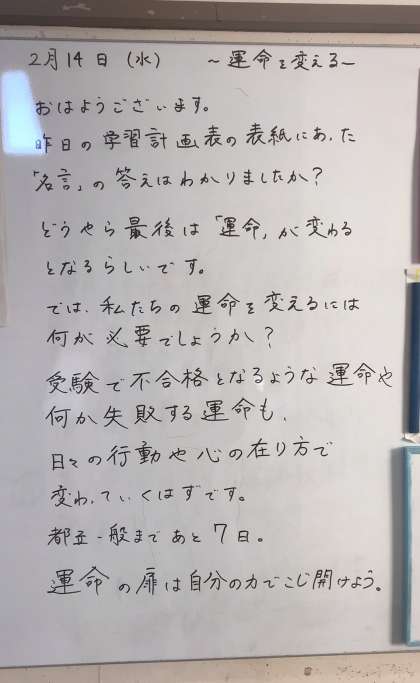 2月14日（水）　～運命を変える～
おはようございます。
昨日の学習計画表の表紙にあった
「名言」の答えはわかりましたか？
どうやら最後は「運命」が変わる
となるらしいです。
では、私たちの運命を変えるには
何が必要でしょうか？
受験で不合格となるような運命や
何か失敗する運命も、
日々の行動や心の在り方で
変わっていくはずです。
都立一般まであと7日。
運命の扉は自分の力でこじ開けよう。